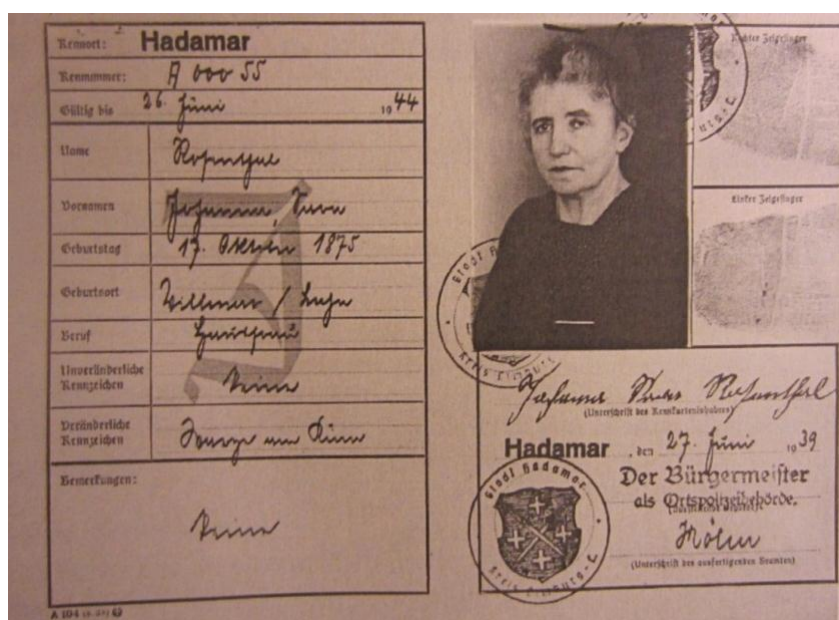 Kennort: Hadamar
Kennnummer: A 000 55
Gültig bis 26. Juni 1944
Name Rosenthal
Vornamen Johanna, Sara
Geburtstag 17. Oktober 1875
Geburtsort Villmar / Lahn
Beruf Hausfrau
Unveränderliche
Kennzeichen Keine
Veränderliche
Kennzeichen Warze am Kinn
Bemerkungen:
Keine
A 104
J
Rechter Zeigefinger
Linker Zeigefinger
Johanna Sara Rosenthal
(Unterschrift des Kennkarteninhabers)
Hadamar, den 27. Juni 1939
Der Bürgermeister
als Ortspolizeibehörde.
(Unterschrift des ausfertigenden Beamten)
Stadt Hadamar